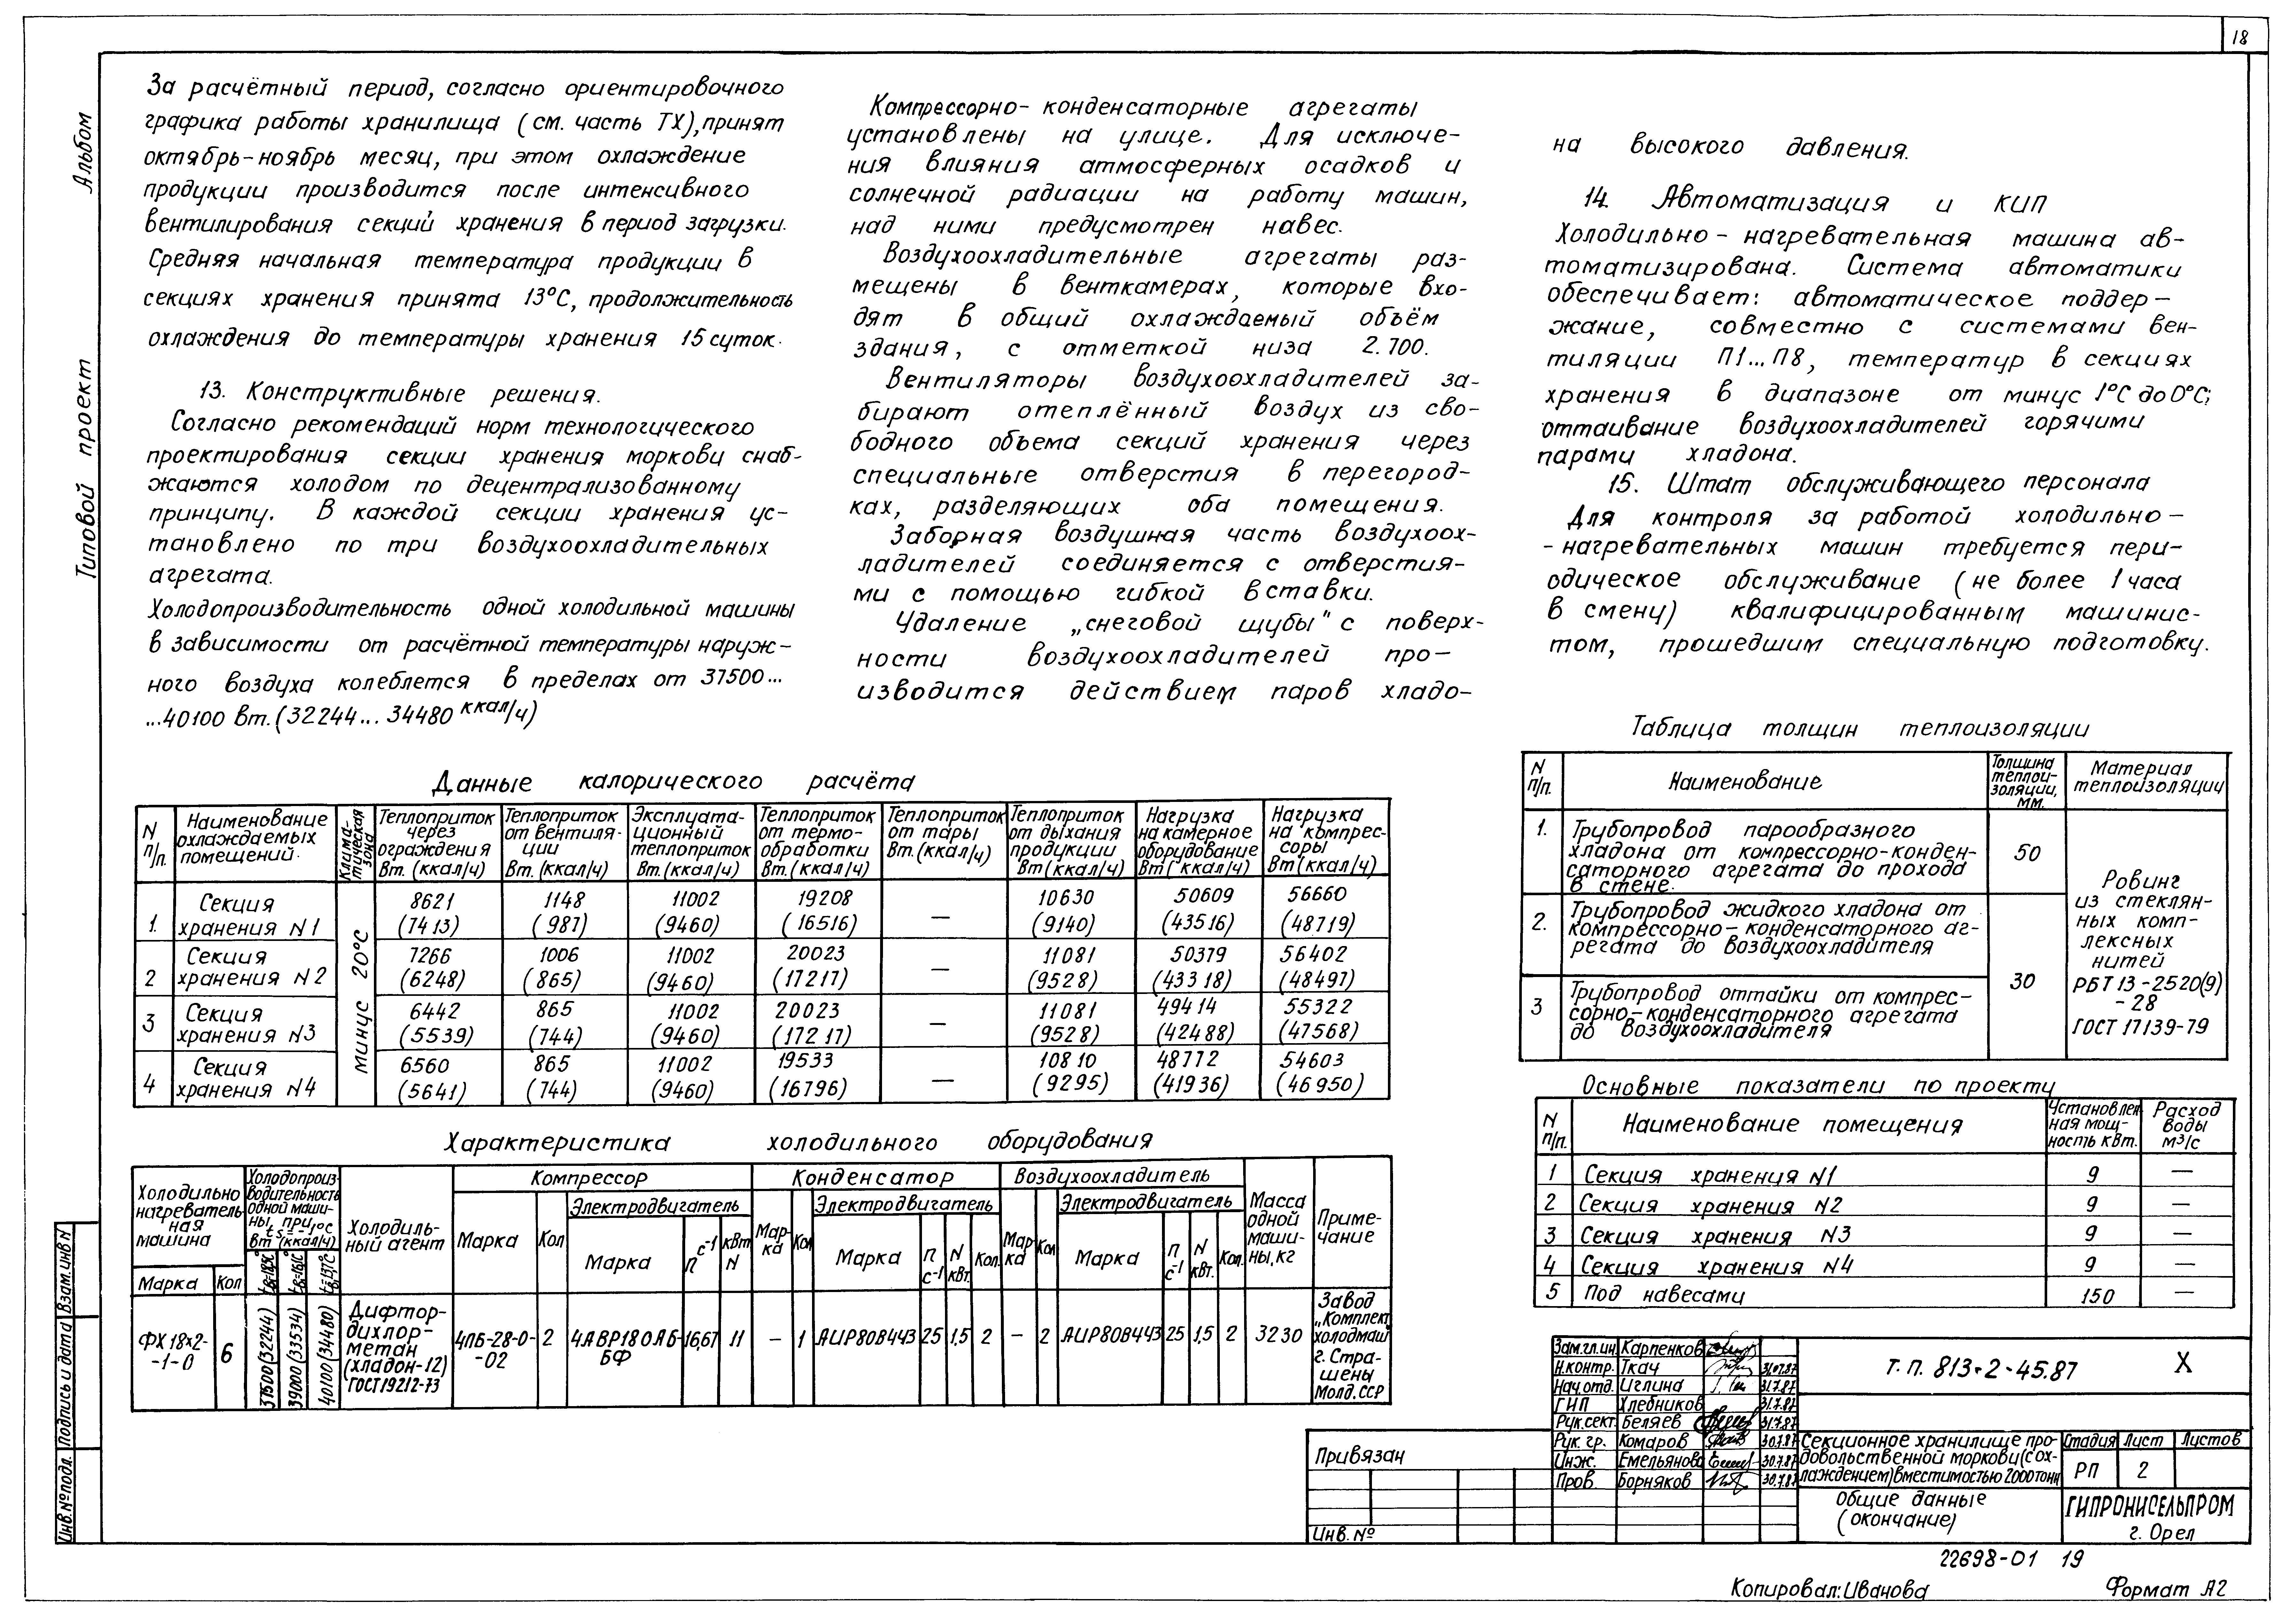 18
Альбом
Типовой проект
За расчётный период, согласно ориентировочного
графика работы хранилища (см. часть ТХ), принят
октябрь-ноябрь месяц, при этом охлаждение
продукции производится после интенсивного
вентилирования секций хранения в период загрузки.
Средняя начальная температура продукции в
секциях хранения принята 13°С, продолжительность
охлаждения до температуры хранения 15 суток.
13. Конструктивные решения.
Согласно рекомендаций норм технологического
проектирования секции хранения моркови снаб-
жаются холодом по децентрализованному
принципу. В каждой секции хранения ус-
тановлено по три воздухоохладительных
агрегата.
Холодопроизводительность одной холодильной машины
в зависимости от расчётной температуры наруж-
ного воздуха колеблется в пределах от 37500...
...40100 Вт. (32244... 34480 ккал/ч)
Компрессорно-конденсаторные агрегаты
установлены на улице. Для исключе-
ния влияния атмосферных осадков и
солнечной радиации на работу машин,
над ними предусмотрен навес.
Воздухоохладительные агрегаты раз-
мещены в венткамерах, которые вхо-
дят в общий охлаждаемый объём
здания, с отметкой низа 2.700.
Вентиляторы воздухоохладителей за-
бирают отеплённый воздух из сво-
бодного объема секций хранения через
специальные отверстия в перегород-
ках, разделяющих оба помещения.
Заборная воздушная часть воздухоох-
ладителей соединяется с отверстия-
ми с помощью гибкой вставки.
Удаление „снеговой шубы" с поверх-
ности воздухоохладителей про-
изводится действием паров хладо-
на высокого давления.
14. Автоматизация и КИП
Холодильно-нагревательная машина ав-
томатизирована. Система автоматики
обеспечивает: автоматическое поддер-
жание, совместно с системами вен-
тиляции П1...П8, температур в секциях
хранения в диапазоне от минус 1°С до 0°С;
оттаивание воздухоохладителей горячими
парами хладона.
15. Штат обслуживающего персонала
Для контроля за работой холодильно-
-нагревательных машин требуется пери-
одическое обслуживание (не более 1 часа
в смену) квалифицированным машинис-
том, прошедшим специальную подготовку.
Данные калорического расчёта
N п/п. Наименование охлаждаемых помещений. Климатическая зона Теплоприток через ограждения Вт. (ккал/ч) Теплоприток от вентиля-ции Вт. (ккал/ч) Эксплуата-ционный теплоприток Вт. (ккал/ч) Теплоприток от термо-обработки Вт. (ккал/ч) Теплоприток от тары Вт. (ккал/ч) Теплоприток от дыхания продукции Вт (ккал/ч) Нагрузка на камерное оборудование Вт (ккал/ч) Нагрузка на компрес-соры Вт (ккал/ч)
минус 20°С
1. Секция хранения N1 8621 1148 11002 19208 — 10630 50609 56660
(7413) (987) (9460) (16516) (9140) (43516) (48719)
2 Секция хранения N2 7266 1006 11002 20023 — 11081 50379 56402
(6248) (865) (9460) (17217) (9528) (43318) (48497)
3 Секция хранения N3 6442 865 11002 20023 — 11081 49414 55322
(5539) (744) (9460) (17217) (9528) (42488) (47568)
4 Секция хранения N4 6560 865 11002 19533 — 10810 48772 54603
(5641) (744) (9460) (16796) (9295) (41936) (46950)
Характеристика холодильного оборудования
Холодильно нагреватель-ная машина Холодопроиз-водительность одной маши-ны, при Вт (ккал/ч) Холодиль-ный агент Компрессор Конденсатор Воздухоохладитель Масса одной маши-ны, кг Приме-чание
Марка Кол Марка Кол Электродвигатель Мар-ка Кол Электродвигатель Мар-ка Кол Электродвигатель
Марка п с-1 кВт N Марка п с-1 N кВт. Кол. Марка п с-1 N кВт. Кол.
ФХ18х2-1-0 6 37500 (32244) 39000 (33534) 40100 (34480) Дифтор-дихлор-метан (хладон-12) ГОСТ 19212-73 4ПБ-28-0-02 2 4АВР180А6-БФ 16,67 11 — 1 АИР80В4У3 25 1,5 2 — 2 АИР80В4У3 25 1,5 2 3230 Завод „Комплект холодмаш г. Стра-шены Молд.ССР
Таблица толщин теплоизоляции
N п/п. Наименование Толщина теплои-золяции, мм. Материал теплоизоляции
1. Трубопровод парообразного
хладона от компрессорно-конден-
саторного агрегата до прохода
в стене. 50
2. Трубопровод жидкого хладона от
компрессорно-конденсаторного аг-
регата до воздухоохладителя
30
3 Трубопровод оттайки от компрес-
сорно-конденсаторного агрегата
до воздухоохладителя
Ровинг
из стеклян-
ных комп-
лексных
нитей
РБТ 13-2520(9)
-28
ГОСТ 17139-79
Основные показатели по проекту
N п/п. Наименование помещения Установлен-ная мощ-ность кВт. Расход воды м³/с
1 Секция хранения N1 9 —
2 Секция хранения N2 9 —
3 Секция хранения N3 9 —
4 Секция хранения N4 9 —
5 Под навесами 150 —
Зам.гл.ин. Карпенков
Н.контр. Ткач 31.07.87
Нач.отд. Иглина 31.7.87
ГИП Хлебников 31.7.87
Рук.сект. Беляев 31.7.87
Рук. гр. Комаров 30.7.87
Инж. Емельянова 30.7.87
Пров. Борняков 30.7.87
Т. П. 813-2-45.87 Х
Секционное хранилище про-
довольственной моркови (с ох-
лаждением) вместимостью 2000 тонн
Стадия Лист Листов
РП 2
Общие данные
(окончание)
ГИПРОНИСЕЛЬПРОМ
г. Орел
Привязан
Инв. №
Инв. № подл. Подпись и дата Взам. инв N
22698-01 19
Копировал: Иванова Формат А2